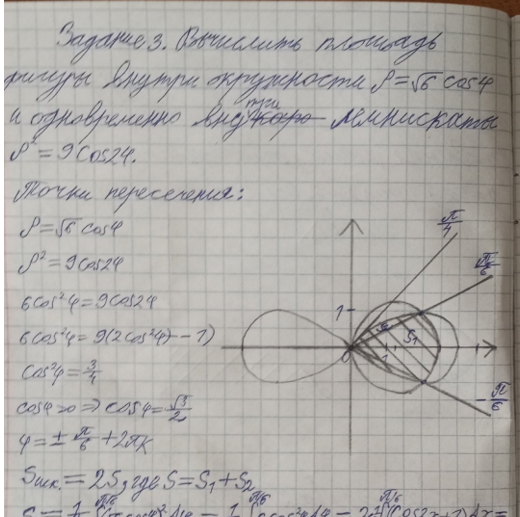 Задание 3. Вычислить площадь
фигуры внутри окружности ρ=√6 cosφ
и одновременно внутри лемнискаты
ρ²=9cos2φ.
Точки пересечения:
ρ=√6 cosφ
ρ²=9cos2φ
6cos²φ=9cos2φ
6cos²φ=9(2cos²φ-1)
cos²φ=3/4
cosφ>0 ⇒ cosφ=√3/2
φ=±π/6+2πk
Sиск.=2S, где S=S₁+S₂
π/4
π/6
1
S₁
0
1
-π/6